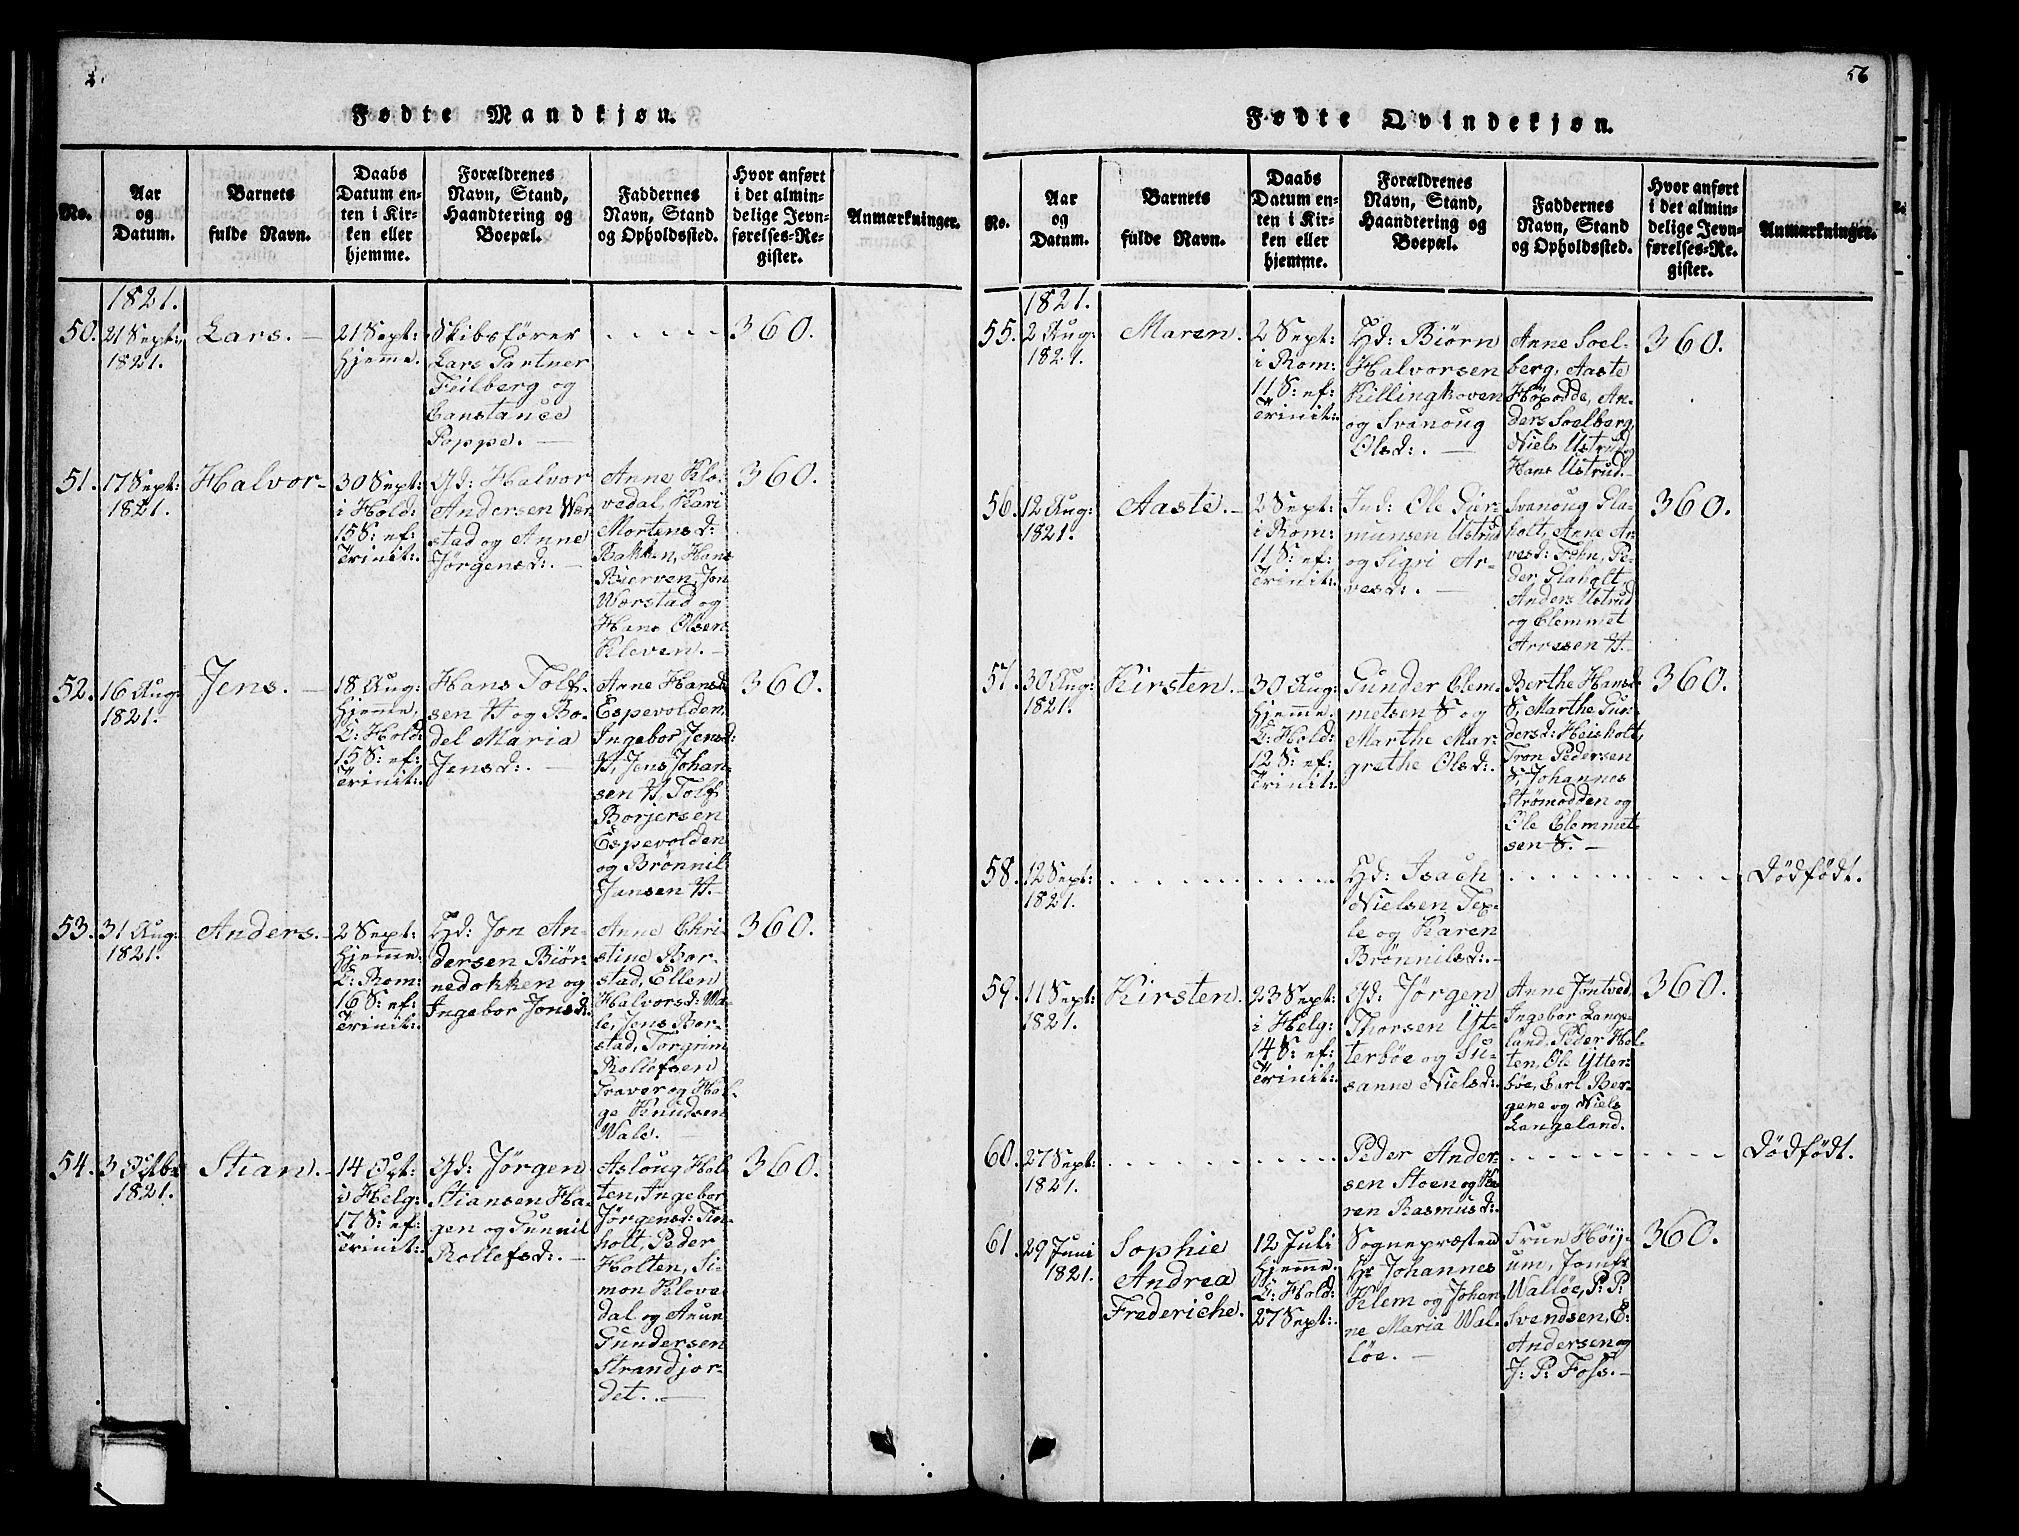 Fødte Mandkjøn.
No.
Aar
og
Datum.
Barnets
fulde Navn.
Daabs
Datum en-
ten i Kir-
ken eller
hjemme.
Forældrenes
Navn, Stand,
Haandtering og
Boepæl.
Faddernes
Navn, Stand
og Opholdssted.
Hvor anført
i det almin-
delige Jevn-
førelses-Re-
gister.
Anmærkninger.
1821.
50.
21 Sept:
1821.
Lars. —
21 Sept:
hjemme.
Skibsfører
Lars Gartner
Feilberg og
Constance
Poppe. —
- - - - -
360.
51.
17 Sept:
1821.
Halvor -
30 Sept:
i Hold:
15 S: ef:
Trinit:
Gd: Halvor
Andersen Wær-
stad og Anne
Jørgensd: —
Anne Klo-
vedal, Kari
Mortensd:
Bakken, Hans
Bierven, Jon
Wærstad og
Hans Olsen
Kleven. —
360.
52.
16 Aug:
1821.
Jens. —
18 Aug:
hjemme.
I: Hold:
15 S: ef:
Trinit:
Hans Tolf-
sen H og Bo-
del Maria
Jensd: —
Anne Hansd
Espevolden,
Ingebor Jensd:
H, Jens Johan-
sen H, Tolf
Borjersen
Espevolden
og Brønnil
Jansen H. —
360.
53.
31 Aug:
1821.
Anders. -
2 Sept:
hjemme.
I: Rom:
16 S: ef:
Trinit:
Hd: Jon An-
dersen Biør-
nedokken og
Ingebor Jonsd:
Anne Chri-
stine Bor-
stad, Ellen
Halvorsd: Wa-
le, Jens Bor-
stad, Torgrim
Rollefsen
Graver og Hel-
ge Knudsen
Wale. —
360.
54.
3 Octbr
1821.
Stian. -
14 Oct:
i Helg:
17 S: ef:
Trinit:
Gd: Jørgen
Stiansen Ha-
gen og Gunnil
Rollefsd: —
Asloug Hol-
ten, Ingebor
Jørgensd: Tin-
holt, Peder
Holten, Si-
mon Klove-
dal og Anun
Gundersen
Strandjor-
det. —
360.
56
Fødte Qvindekjøn.
No.
Aar
og
Datum.
Barnets
fulde Navn.
Daabs
Datum en-
ten i Kir-
ken eller
hjemme.
Forældrenes
Navn, Stand,
Haandtering og
Boepæl.
Faddernes
Navn, Stand
og Opholdssted.
Hvor anført
i det almin-
delige Jevn-
førelses-Re-
gister.
Anmærkninger.
1821.
55.
2 Aug:
1821.
Maren.
2 Sept:
i Rom:
11 S: ef:
Trinit:
Hd: Biørn
Halvorsen
Killinghoven
og Svanoug
Olsd: —
Anne Soel-
berg, Aaste
Høyodde, An-
ders Soelberg,
Niels Ustrud,
Hans Ustrud. -
360.
56.
12 Aug:
1821.
Aaste. -
2 Sept:
i Rom:
11 S: ef:
Trinit:
Ind: Ole Gier-
munsen Ustrud
og Sigri Ar-
vesd: —
Svanoug Gla-
holt, Anne Ar-
vesd: Fehn, Pe-
der Glaholt,
Anders Ustrud
og Clemmet
Arvesen H. -
360.
57.
30 Aug:
1821.
Kirsten. -
30 Aug:
hjemme.
I: Hold:
12 S: ef:
Trinit:
Gunder Clem-
metsen S og
Marthe Mar-
grethe Olsd:
Berthe Hansd
S, Marthe Gun-
dersd: Heisholt,
Tron Pedersen
S, Johannes
Strømodden og
Ole Clemmet-
sen S. —
360.
58.
12 Sept:
1821.
- - - - -
- - - - -
Hd: Isach
Nielsen Tex-
le og Karen
Brønnilsd: -
- - - - -
- - - -
Dødfødt.
59.
11 Sept:
1821.
Kirsten.
23 Sept:
i Helg:
14 S: ef:
Trinit:
Gd: Jørgen
Thorsen Yt-
terbøe og Su-
sanne Nielsd:
Anne Jøntved,
Ingebor Lange-
land, Peder Hol-
ten, Ole Ytter-
bøe, Carl Ber-
gene og Niels
Langeland.
360.
60.
27 Sept:
1821.
- - - - -
- - - - -
Peder Ander-
sen Stoen og Ka-
ren Rasmusd:
- - - - -
- - - -
Dødfødt.
61.
29 Juni
1821.
Sophie
Andrea
Frederiche.
12 Juli
hjemme.
I: Hold:
27 Sept:
Sognepræsten
Hr Johannes
Klem og Johan-
ne Maria Wal-
løe. —
Frue Høy-
um, Jomfr
Walløe, P: P:
Svendsen, E:
Andersen og
J: P: Foss. -
360.